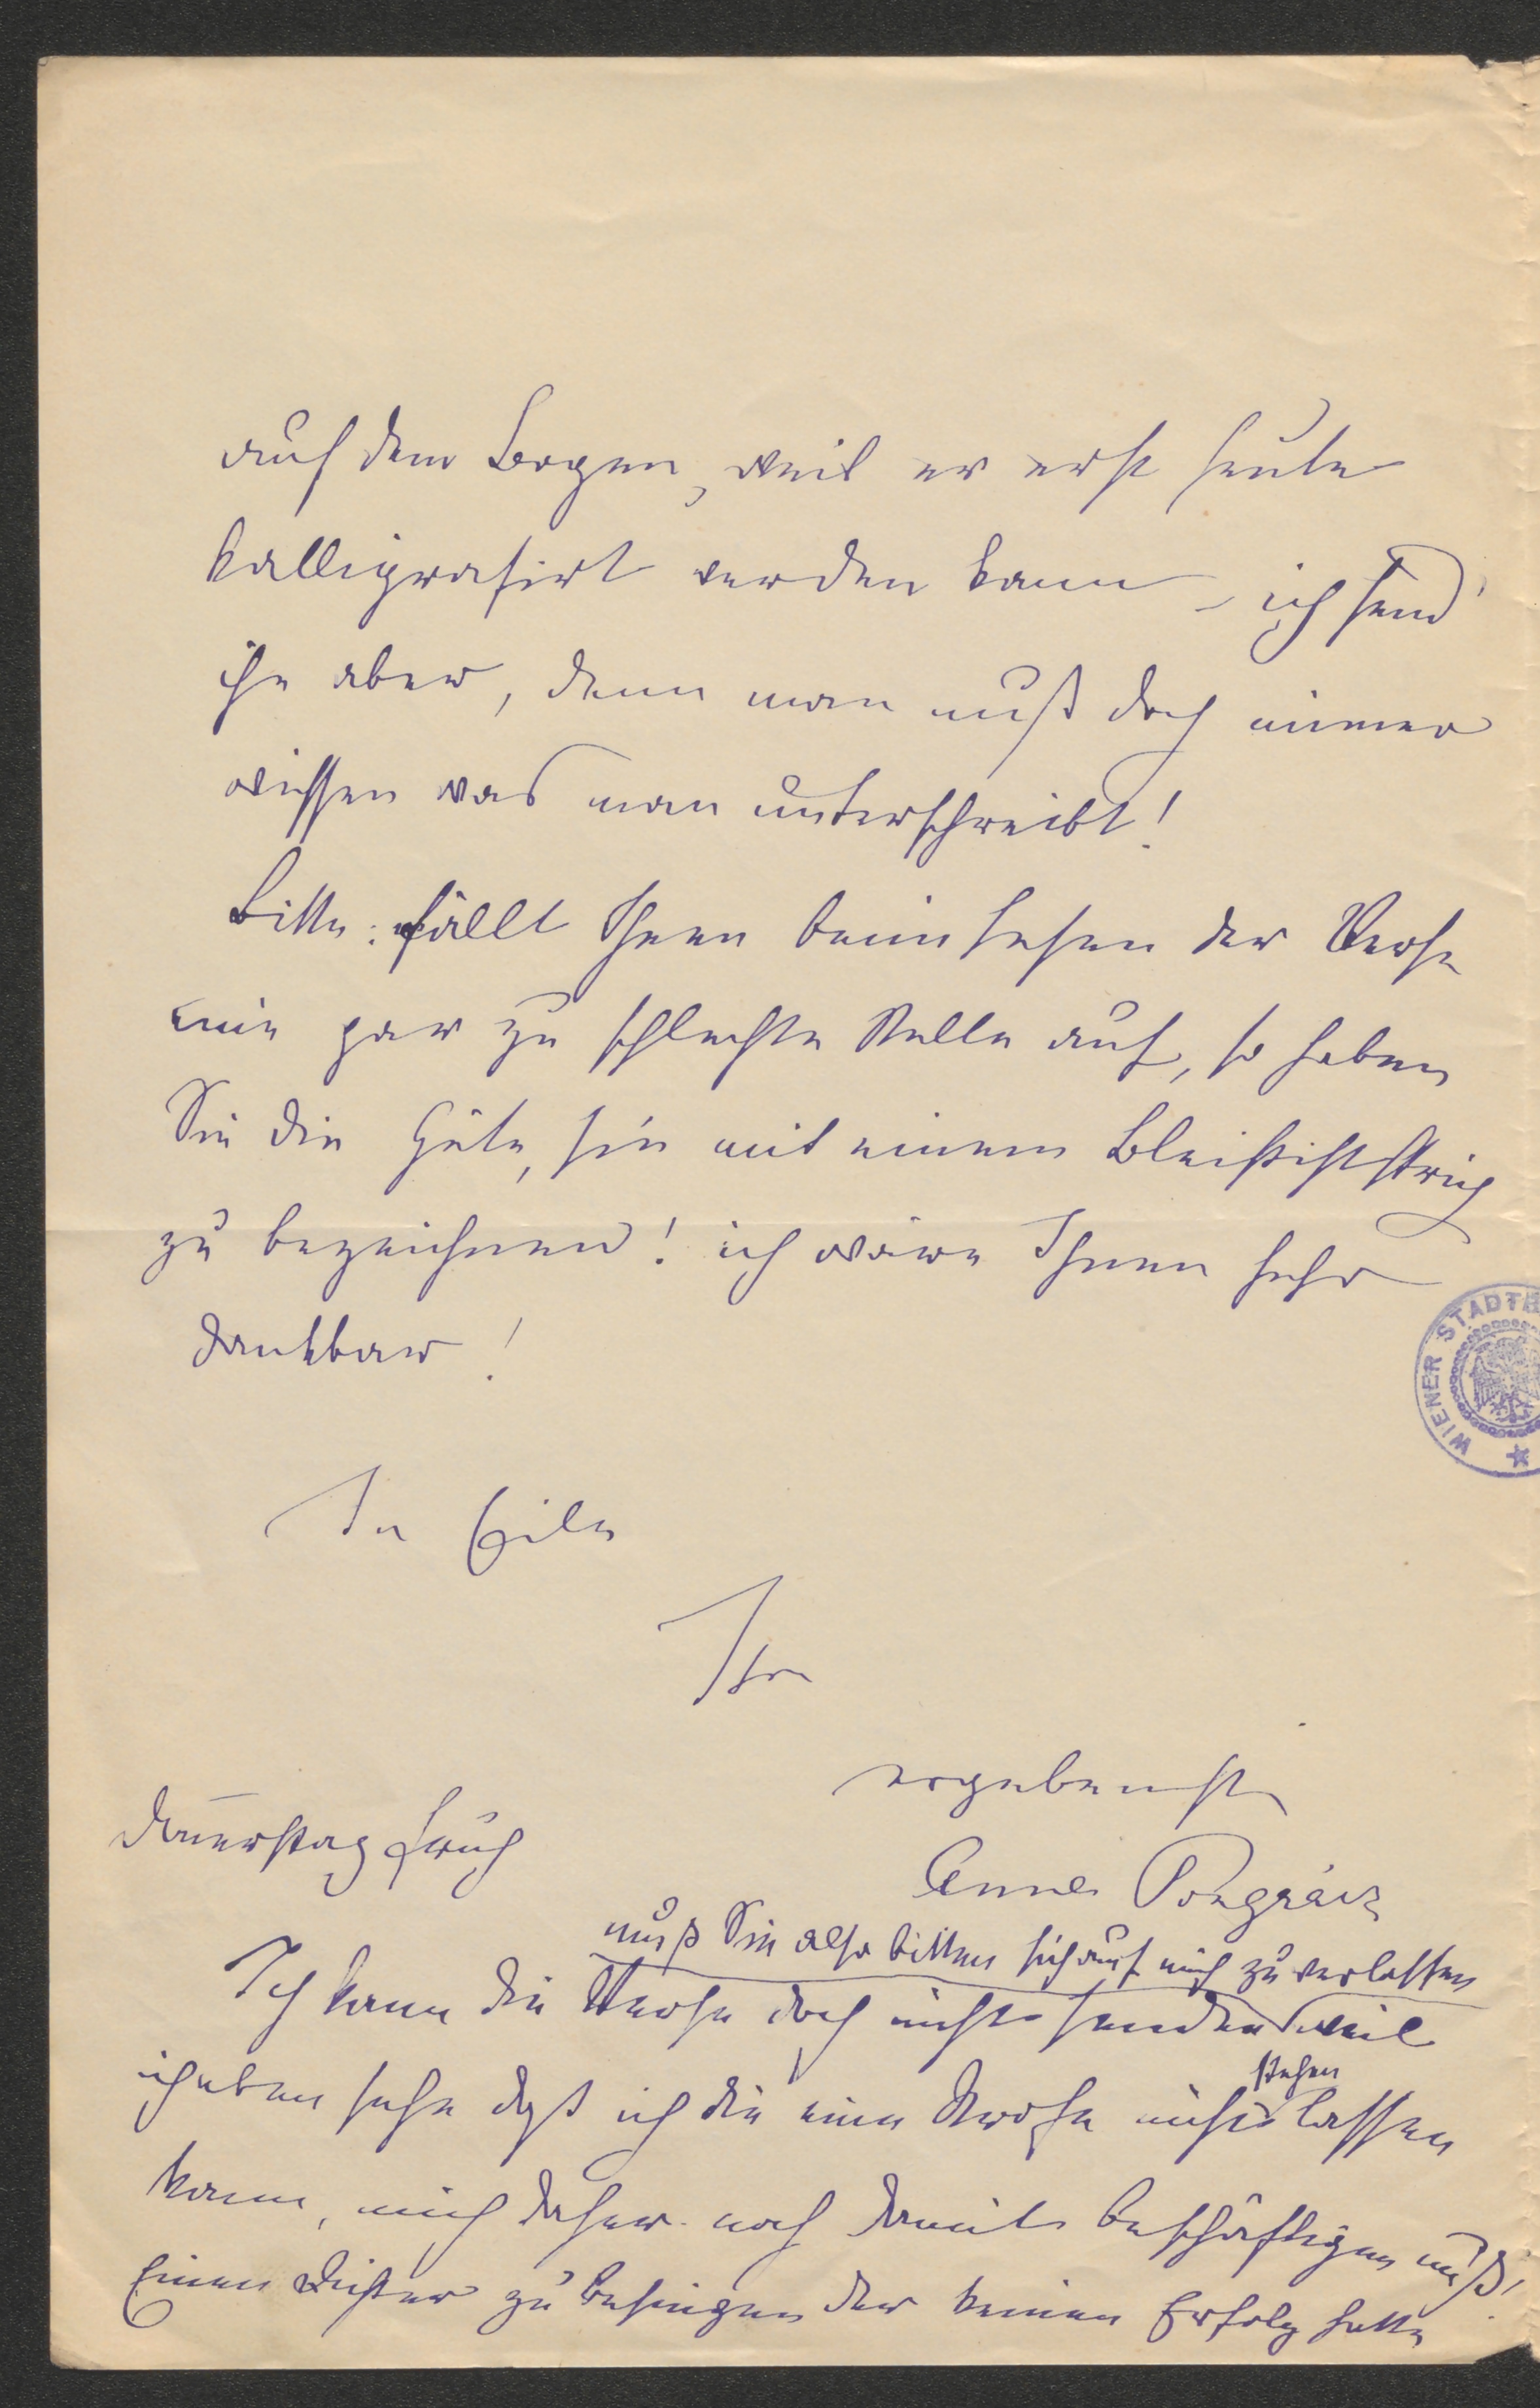 auf dem Bogen, weil er erst heute
kalligrafirt werden kann – ich send'
ihn aber, denn man muß doch immer
wissen was man unterschreibt!
Bitte: fällt Ihnen beim Lesen der Verse
eine gar zu schlechte Stelle auf, so haben
Sie die Güte, sie mit einem Bleistiftstrich
zu bezeichnen! ich wäre Ihnen sehr
dankbar!
WIENER STADTB
In Eile
Ihre
ergebenste
Donnerstag früh
Anna Pongrácz
muß Sie also bitten sich auf mich zu verlassen
Ich kann die Verse doch nicht senden weil
stehen
ich eben sehe daß ich die eine Strofe nicht lassen
kann, mich daher noch damit beschäftigen muß!
Einen Dichter zu besingen der keinen Erfolg hatte